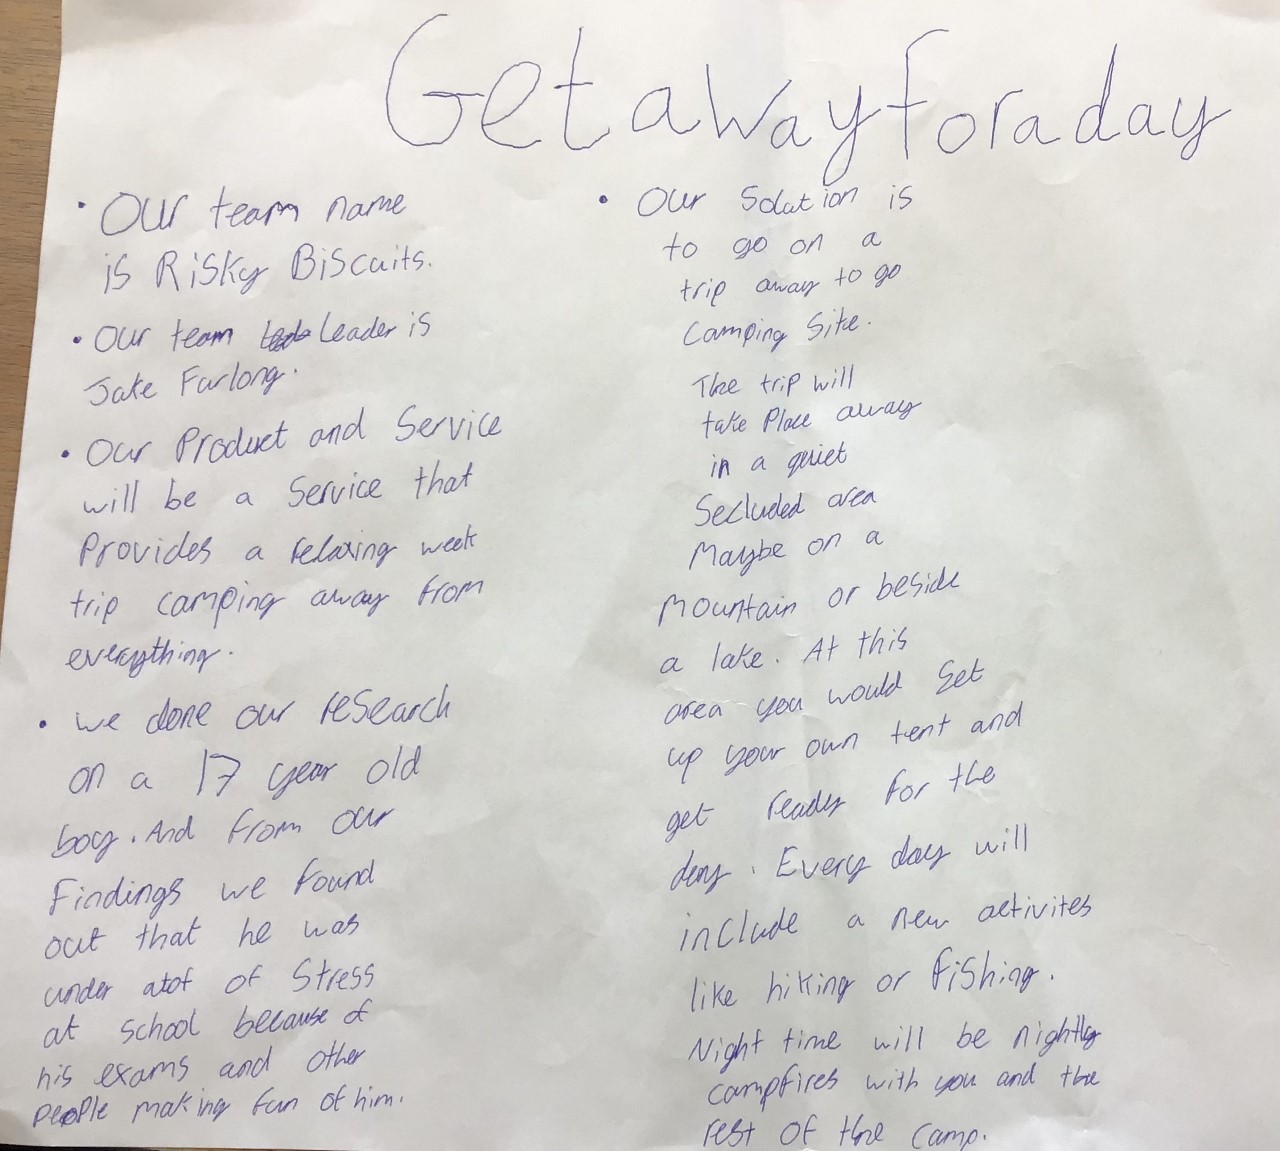 Getawayforaday
• Our team name
is Risky Biscuits.
• Our team Leader is
Jake Furlong.
• Our Product and Service
will be a Service that
Provides a relaxing week
trip camping away from
everything.
• we done our research
on a 17 year old
boy. And from our
Findings we found
out that he was
under alot of Stress
at school because of
his exams and other
people making fun of him.
• Our Solution is
to go on a
trip away to go
Camping Site.
The trip will
take Place away
in a quiet
Secluded area
Maybe on a
Mountain or beside
a lake. At this
area you would Set
up your own tent and
get ready for the
day. Every day will
include a new activites
like hiking or fishing.
Night time will be nightly
campfires with you and the
rest of the camp.